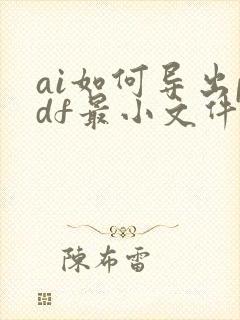 ai如何导出p
df最小文件
陳布雷